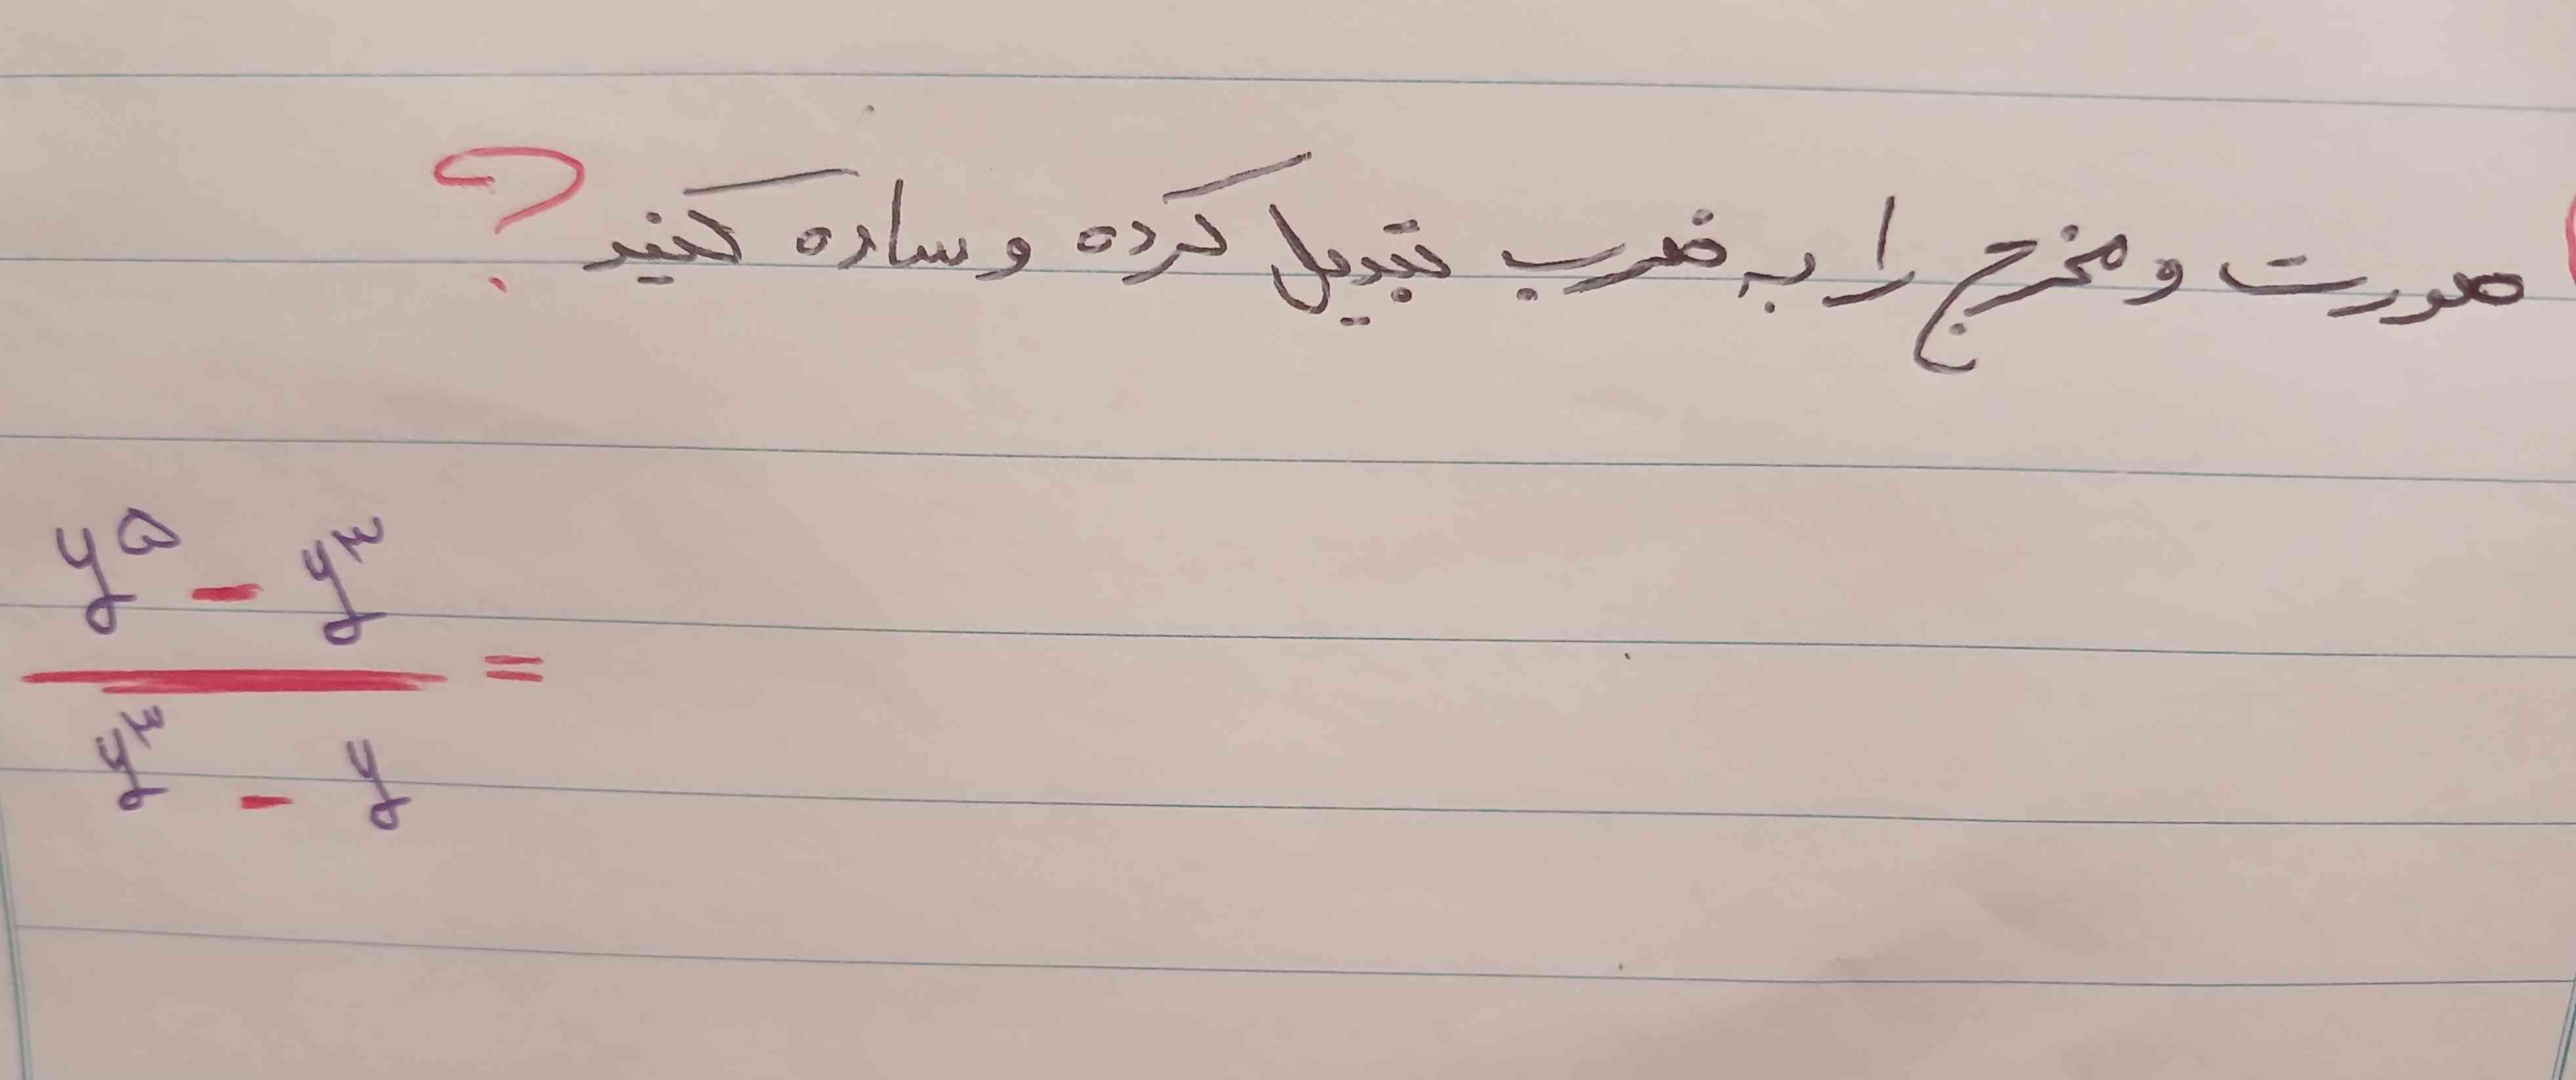 صورت و مخرج را به ضرب تبدیل کرده و ساده کنید ؟
y^۵ - y^۳
=
y^۳ - y